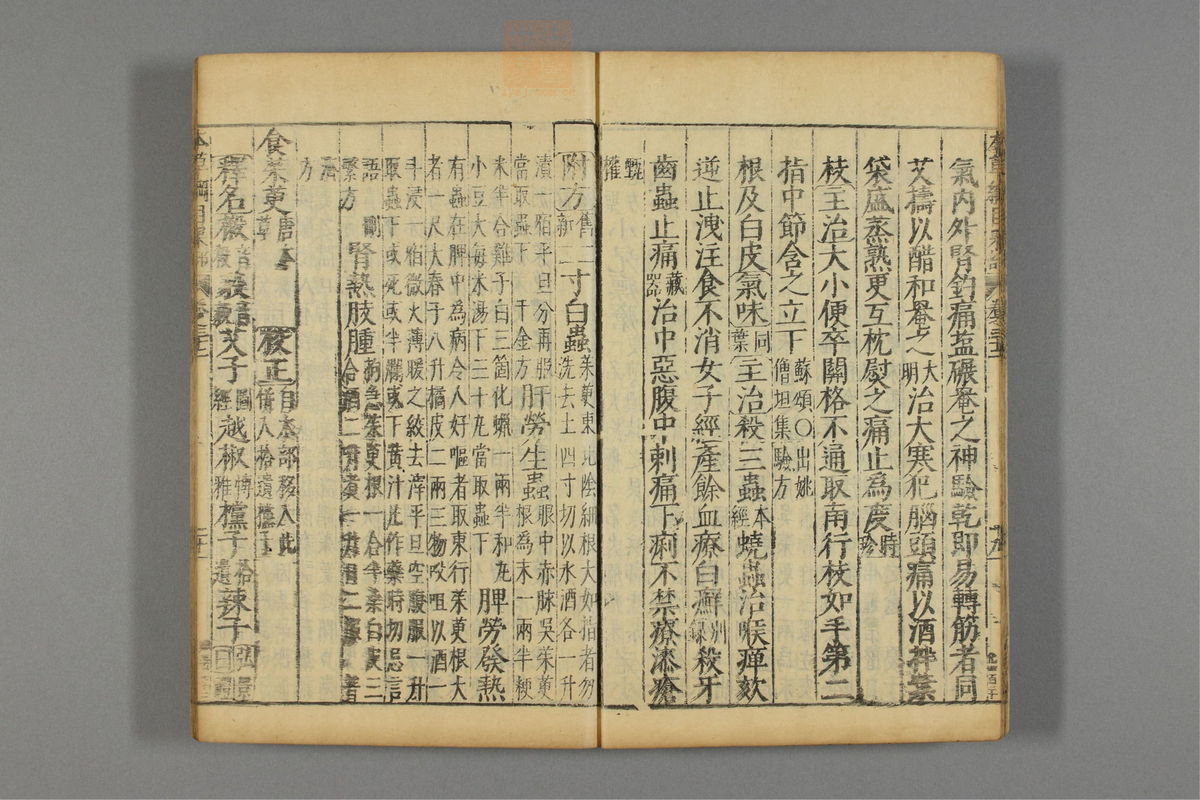 氣内外腎釣痛塩碾罨之神驗乾即易轉筋者同
艾擣以醋和罨之大明治大寒犯腦頭痛以酒拌葉
袋盛蒸熟更互枕熨之痛止爲度時珍
枝主治大小便卒關格不通取南行枝如手第二
指中節含之立下蘇頌○出姚僧坦集驗方
根及白皮氣味同葉主治殺三蟲本經蟯蟲治喉痺欬
逆止洩注食不消女子經産餘血療白癬别錄殺牙
齒蟲止痛藏器治中惡腹中刺痛下痢不禁療漆瘡
甄權
附方舊二新二寸白蟲茱萸東北陰細根大如指者勿
洗去土四寸切以水酒各一升
漬一宿平旦分再服
當取蟲下千金方肝勞生蟲眼中赤脉吳茱萸
根爲末一兩半粳
米半合雞子白三箇化蠟一兩半和丸
小豆大每米湯下三十丸當取蟲下脾勞發熱
有蟲在脾中爲病令人好嘔者取東行茱萸根大
者一尺大麻子八升橘皮二兩三物㕮咀以酒一
斗浸一宿微火薄暖之絞去滓平旦空腹服一升
取蟲下或死或半爛或下黄汁凡作藥時切忌言
語
方腎熱肢腫拘急茱萸根一合半桑白皮三
合酒二升煮一升日二服
方
食茱萸唐本草校正自木部移入此
併入拾遺欓子
釋名藙艾子圖經越椒博雅欓子拾遺辣子